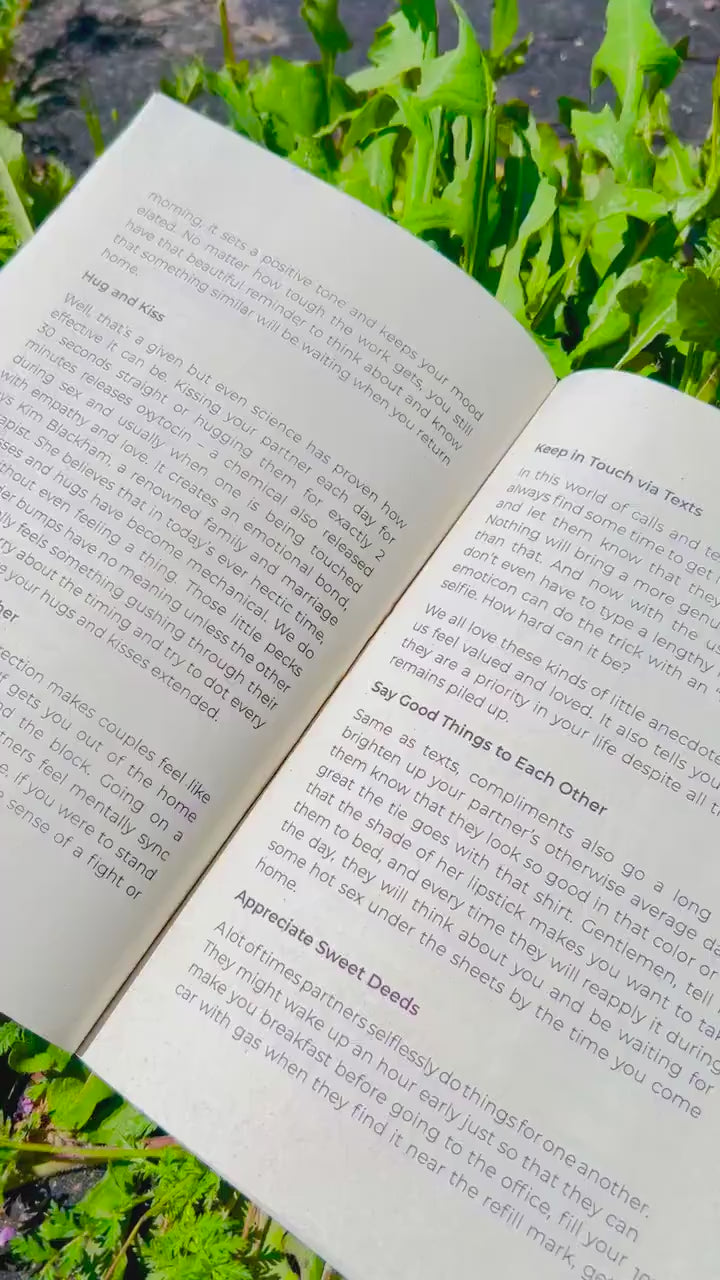 morning, it sets a positive tone and keeps your mood
elated. No matter how tough the work gets, you still
have that beautiful reminder to think about and know
that something similar will be waiting when you return
home.
Hug and Kiss
Well, that's a given but even science has proven how
effective it can be. Kissing your partner each day for
30 seconds straight or hugging them for exactly 2
minutes releases oxytocin – a chemical also released
during sex and usually when one is being touched
with empathy and love. It creates an emotional bond,
Kim Blackham, a renowned family and marriage
She believes that in today's ever hectic time,
and hugs have become mechanical. We do
without even feeling a thing. Those little pecks
bumps have no meaning unless the other
feels something gushing through their
about the timing and try to dot every
your hugs and kisses extended.
makes couples feel like
gets you out of the home
the block. Going on a
feel mentally sync
If you were to stand
sense of a fight or
Keep in Touch via Texts
In this world of calls and
always find some time to get
and let them know that they
Nothing will bring a more
than that. And now with the
don't even have to type a lengthy
emoticon can do the trick with an
selfie. How hard can it be?
We all love these kinds of little
us feel valued and loved. It also tells
they are a priority in your life despite all
remains piled up.
Say Good Things to Each Other
Same as texts, compliments also go a long
brighten up your partner's otherwise average
them know that they look so good in that color or
great the tie goes with that shirt. Gentlemen, tell
that the shade of her lipstick makes you want to
them to bed, and every time they will reapply it during
the day, they will think about you and be waiting for
some hot sex under the sheets by the time you come
home.
Appreciate Sweet Deeds
A lot of times partners selflessly do things for one another.
They might wake up an hour early just so that they can
make you breakfast before going to the office, fill your
car with gas when they find it near the refill mark,